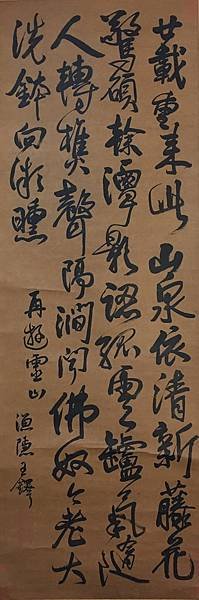 廿載重來此山泉依清新藤花
驚碩餘潭影認孤雲鑪氣隨
人轉樵聲隔澗聞佛奴今老大
洗鉢向微曛
再遊靈山 漁隱王鐸